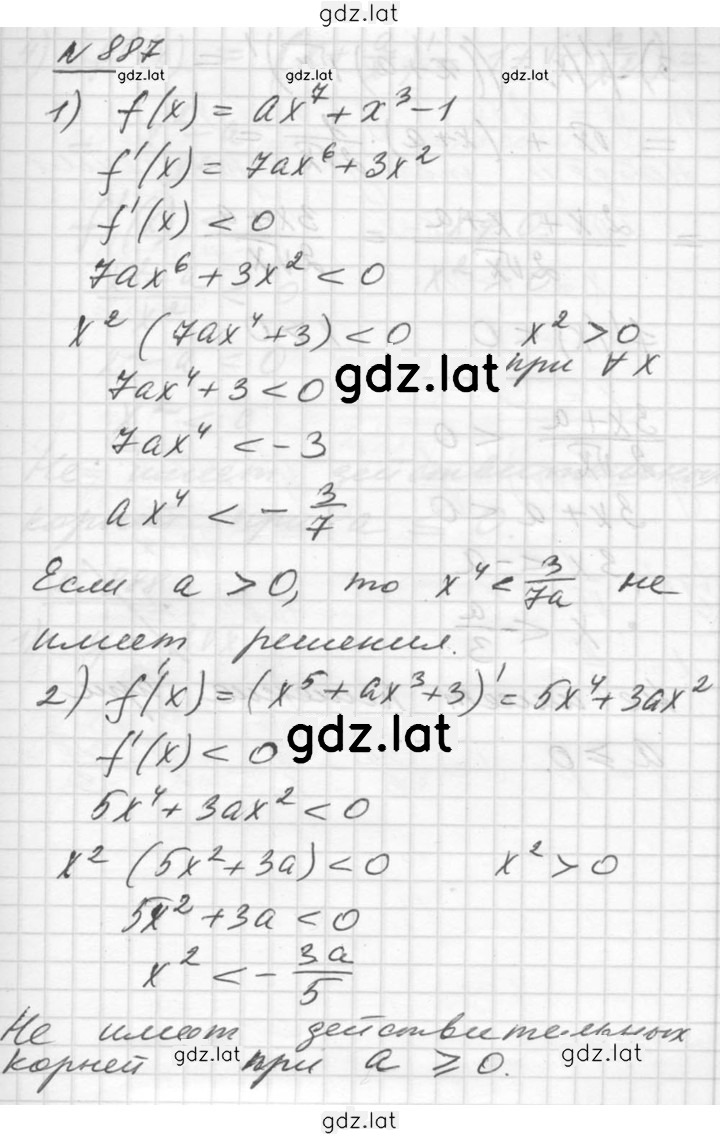 gdz.lat
N 887
gdz.lat gdz.lat gdz.lat
1) f(x) = ax⁷ + x³ - 1
f'(x) = 7ax⁶ + 3x²
f'(x) < 0
7ax⁶ + 3x² < 0
x² (7ax⁴ + 3) < 0 x² > 0
при ∀ x
gdz.lat
7ax⁴ + 3 < 0
7ax⁴ < -3
ax⁴ < - 3/7
Если a > 0, то x⁴ < 3/7a не
имеет решения.
2) f'(x) = (x⁵ + ax³ + 3)' = 5x⁴ + 3ax²
f'(x) < 0
gdz.lat
5x⁴ + 3ax² < 0
x² (5x² + 3a) < 0 x² > 0
5x² + 3a < 0
x² < - 3a/5
Не имеет действительных
корней при a ⩾ 0.
gdz.lat gdz.lat
gdz.lat